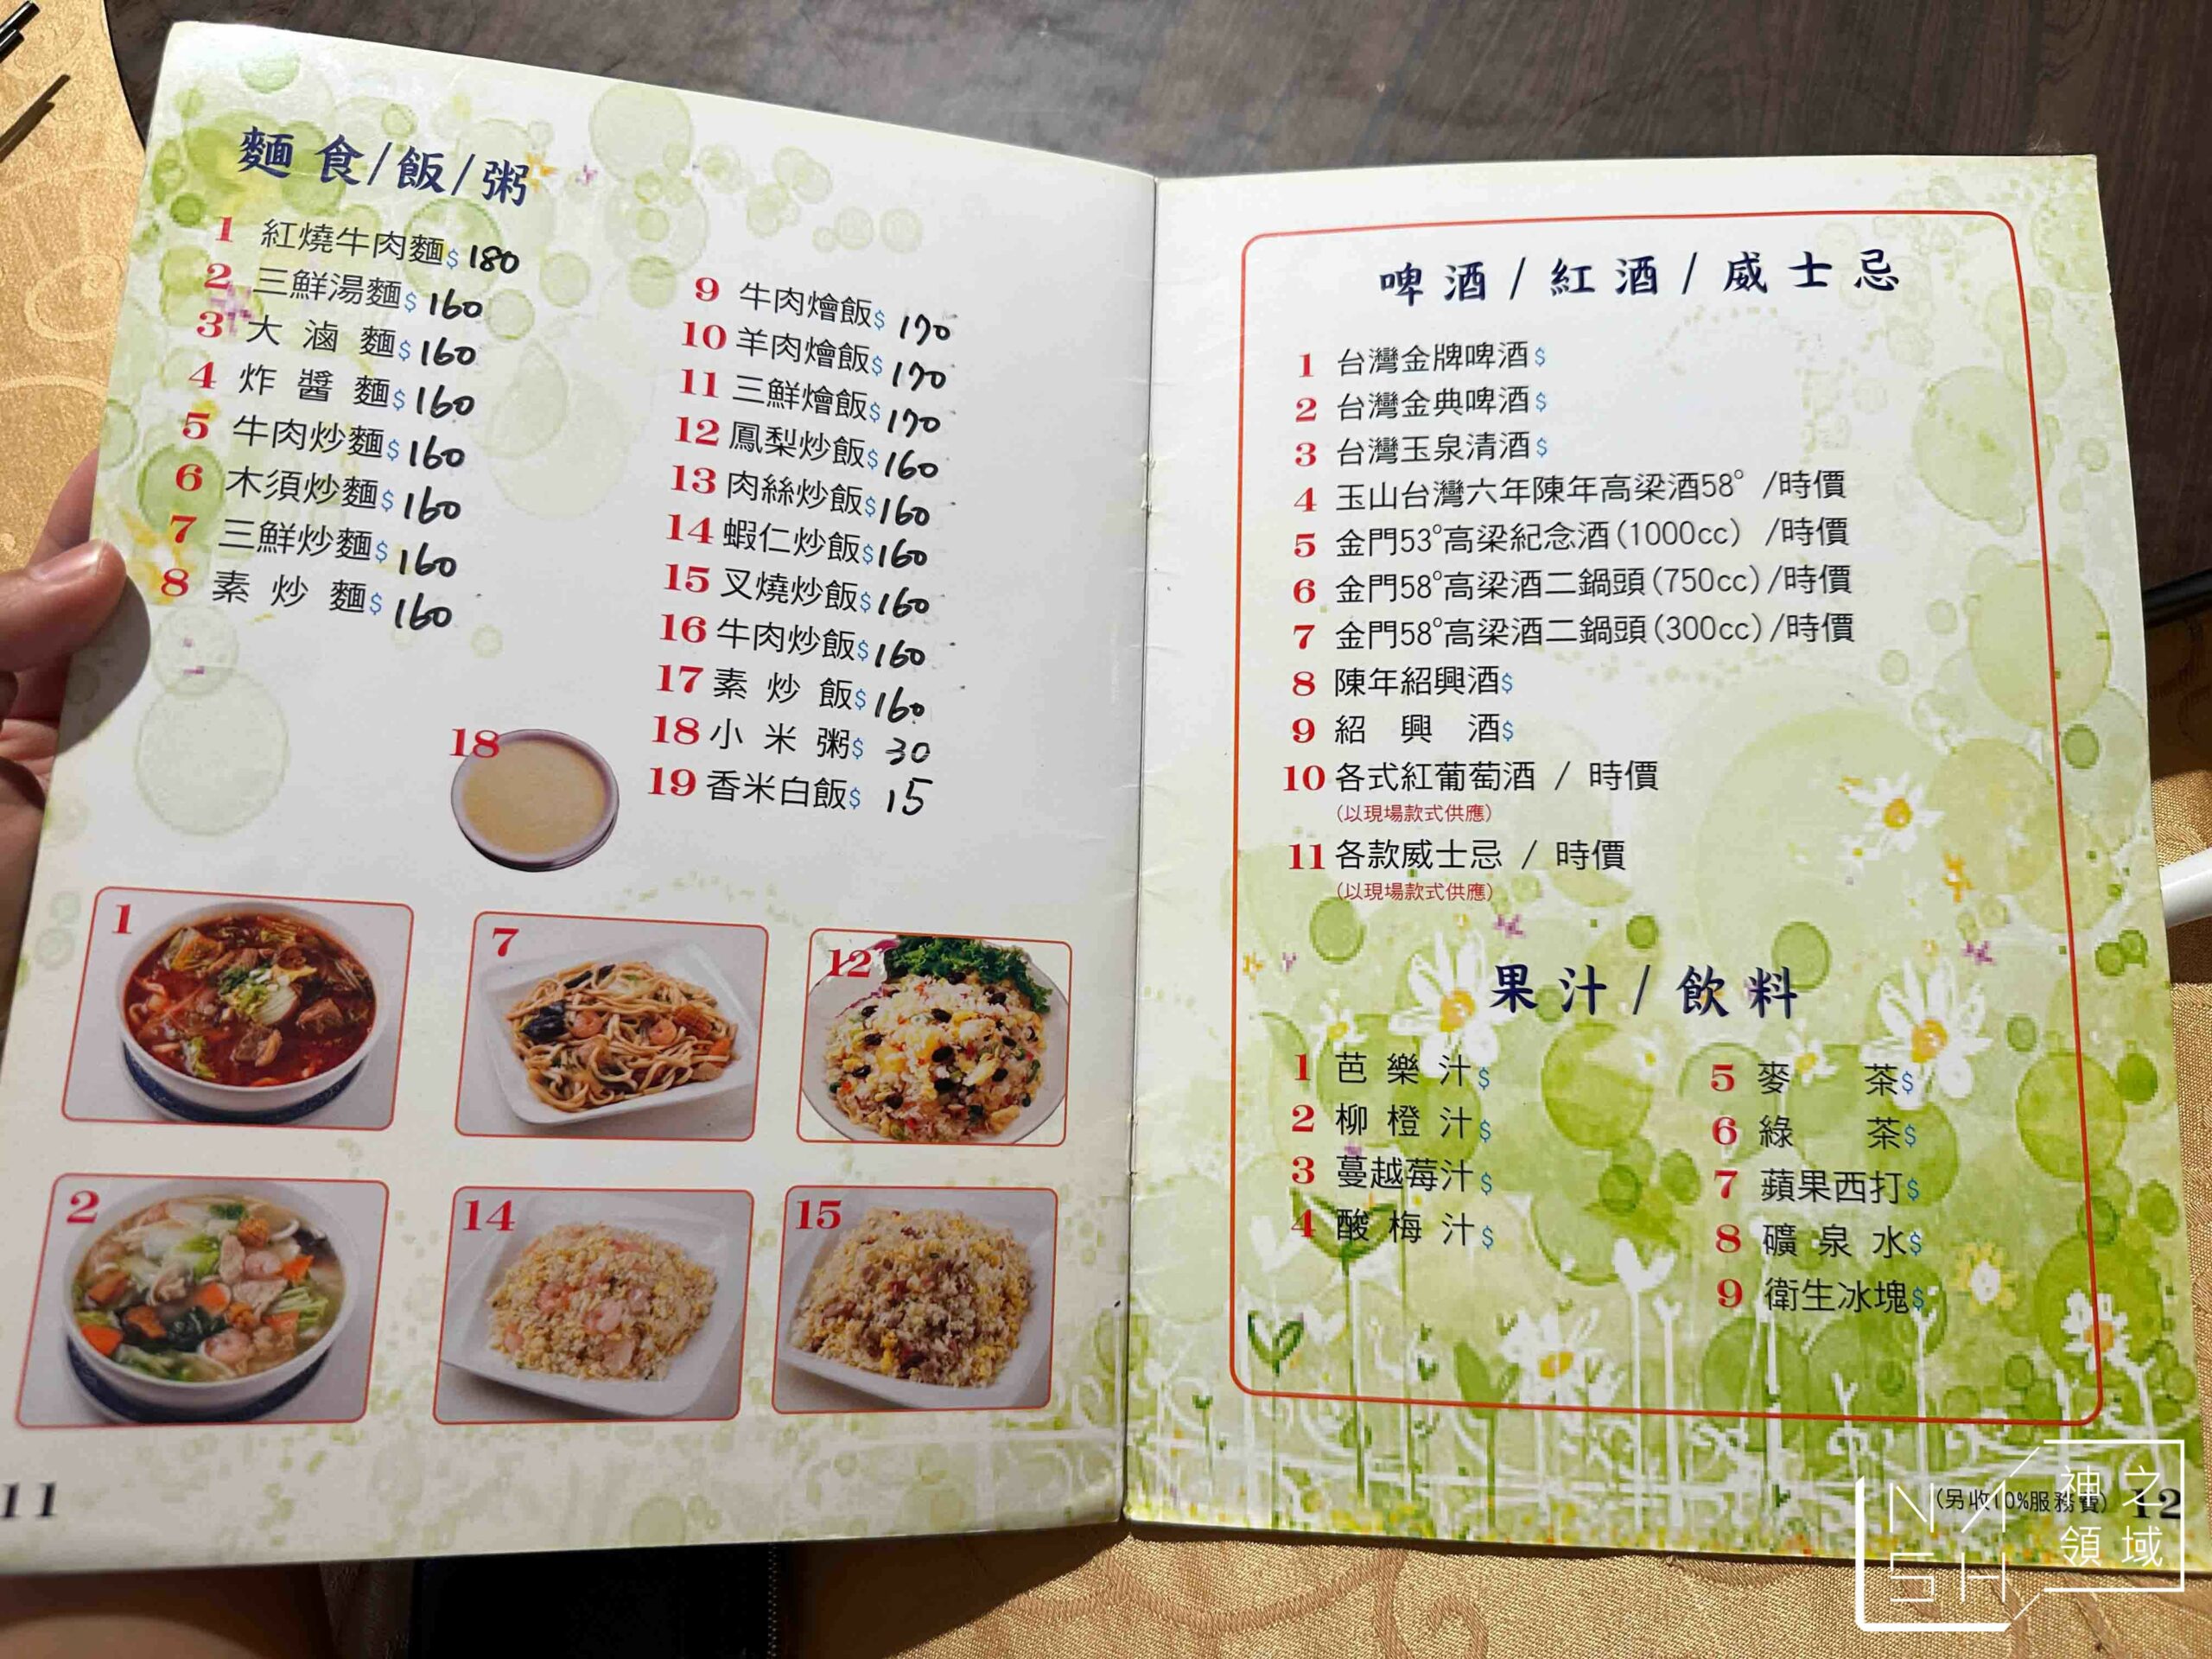 麵食/飯/粥
1 紅燒牛肉麵$180
2 三鮮湯麵$160
3 大滷麵$160
4 炸醬麵$160
5 牛肉炒麵$160
6 木須炒麵$160
7 三鮮炒麵$160
8 素炒麵$160
9 牛肉燴飯$170
10 羊肉燴飯$170
11 三鮮燴飯$170
12 鳳梨炒飯$160
13 肉絲炒飯$160
14 蝦仁炒飯$160
15 叉燒炒飯$160
16 牛肉炒飯$160
17 素炒飯$160
18 小米粥$30
19 香米白飯$15
18
1
7
12
2
14
15
11
啤酒/紅酒/威士忌
1 台灣金牌啤酒$
2 台灣金典啤酒$
3 台灣玉泉清酒$
4 玉山台灣六年陳年高梁酒58° /時價
5 金門53°高梁紀念酒(1000cc) /時價
6 金門58°高梁酒二鍋頭(750cc)/時價
7 金門58°高梁酒二鍋頭(300cc)/時價
8 陳年紹興酒$
9 紹興酒$
10 各式紅葡萄酒 / 時價
(以現場款式供應)
11 各款威士忌 / 時價
(以現場款式供應)
果汁/飲料
1 芭樂汁$
2 柳橙汁$
3 蔓越莓汁$
4 酸梅汁$
5 麥茶$
6 綠茶$
7 蘋果西打$
8 礦泉水$
9 衛生冰塊$
(另收10%服務費) 12
神之
領域